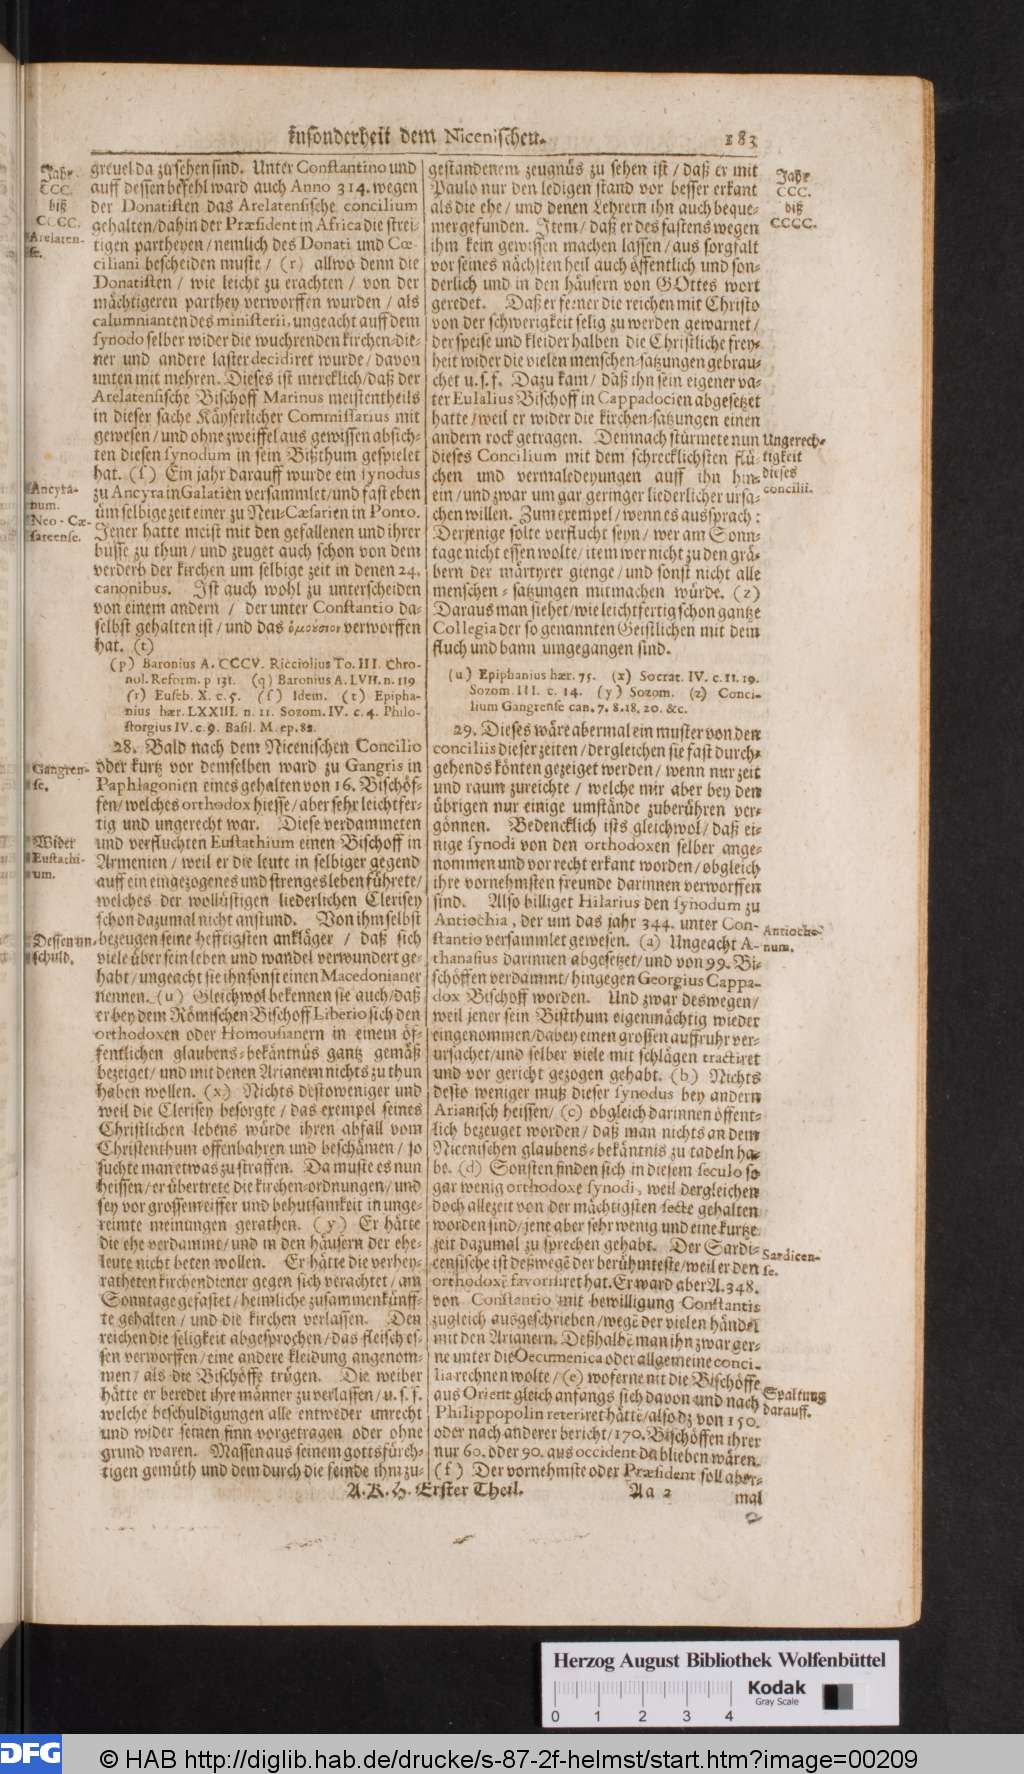 insonderheit dem Nicenischen.
183
Jahr
CCC.
biß
CCCC.
Arelaten-
se.
greuel da zusehen sind. Unter Constantino und
auff dessen befehl ward auch Anno 314. wegen
der Donatisten das Arelatensische concilium
gehalten/dahin der Præsident in Africa die strei-
tigen partheyen/nemlich des Donati und Cœ-
ciliani bescheiden muste/ (r) allwo denn die
Donatisten / wie leicht zu erachten / von der
mächtigeren parthey verworffen wurden / als
calumnianten des ministerii, ungeacht auff dem
synodo selber wider die wuchrenden kirchen-die-
ner und andere laster decidiret wurde / davon
unten mit mehren. Dieses ist mercklich/daß der
Arelatensische Bischoff Marinus meistentheils
in dieser sache Käyserlicher Commissarius mit
gewesen/und ohne zweiffel aus gewissen absich-
ten diesen synodum in sein Bißthum gespielet
hat. (s) Ein jahr darauff wurde ein synodus
zu Ancyra in Galatien versammlet/und fast eben
üm selbige zeit einer zu Neu-Cæsarien in Ponto.
Jener hatte meist mit den gefallenen und ihrer
busse zu thun/ und zeuget auch schon von dem
verderb der kirchen um selbige zeit in denen 24.
canonibus. Ist auch wohl zu unterscheiden
von einem andern / der unter Constantio da-
selbst gehalten ist/und das ὁμούσιον verworffen
hat. (t)
Ancyra-
num.
Neo-Cæ-
sareense.
(p) Baronius A. CCCV. Ricciolius To. III. Chro-
nol. Reform. p 131. (q) Baronius A. LVII. n. 119
(r) Euseb. X. c. 5. (s) Idem. (t) Epipha-
nius hær. LXXIII. n. 11. Sozom. IV. c. 4. Philo-
storgius IV. c. 9. Basil. M. ep. 82.
28. Bald nach dem Nicenischen Concilio
oder kurtz vor demselben ward zu Gangris in
Paphlagonien eines gehalten von 16. Bischöf-
fen/welches orthodox hiesse/aber sehr leichtfer-
tig und ungerecht war. Diese verdammeten
und verfluchten Eustathium einen Bischoff in
Armenien/ weil er die leute in selbiger gegend
auff ein eingezogenes und strenges leben führete/
welches der wollüstigen liederlichen Clerisey
schon dazumal nicht anstund. Von ihm selbst
bezeugen seine hefftigsten ankläger / daß sich
viele über sein leben und wandel verwundert ge-
habt/ungeacht sie ihn sonst einen Macedonianer
nennen. (u) Gleichwol bekennen sie auch/daß
er bey dem Römischen Bischoff Liberio sich den
orthodoxen oder Homousianern in einem öf-
fentlichen glaubens-bekäntnüs gantz gemäß
bezeiget/ und mit denen Arianern nichts zu thun
haben wollen. (x) Nichts destoweniger und
weil die Clerisey besorgte / das exempel seines
Christlichen lebens würde ihren abfall vom
Christenthum offenbahren und beschämen/ so
suchte man etwas zu straffen. Da muste es nun
heissen/er übertrete die kirchen-ordnungen/und
sey vor grossen eiffer und behutsamkeit in unge-
reimte meinungen gerathen. (y) Er hätte
die ehe verdammt/und in den häusern der ehe-
leute nicht beten wollen. Er hätte die verhey-
ratheten kirchendiener gegen sich verachtet/ am
Sonntage gefastet/heimliche zusammenkünff-
te gehalten/ und die kirchen verlassen. Den
reichen die seligkeit abgesprochen/das fleisch es-
sen verworffen/eine andere kleidung angenom-
men/ als die Bischöffe trügen. Die weiber
hätte er beredet ihre männer zu verlassen/ u. s. f.
welche beschuldigungen alle entweder unrecht
und wider seinen sinn vorgetragen oder ohne
grund waren. Massen aus seinem gottsfürch-
tigen gemüth und dem durch die feinde ihm zu-
Gangren-
se.
Wider
Eustathi-
um.
Dessen un-
schuld.
gestandenem zeugnüs zu sehen ist/daß er mit
Paulo nur den ledigen stand vor besser erkant
als die ehe/ und denen Lehrern ihn auch beque-
mer gefunden. Item/ daß er des fastens wegen
ihm kein gewissen machen lassen/aus sorgfalt
vor seines nächsten heil auch öffentlich und son-
derlich und in den häusern von GOttes wort
geredet. Daß er ferner die reichen mit Christo
von der schwerigkeit selig zu werden gewarnet/
der speise und kleider halben die Christliche frey-
heit wider die vielen menschen-satzungen gebrau-
chet u. s. f. Dazu kam/ daß ihn sein eigener va-
ter Eulalius Bischoff in Cappadocien abgesetzet
hatte/weil er wider die kirchen-satzungen einen
andern rock getragen. Demnach stürmete nun
dieses Concilium mit dem schrecklichsten flü-
chen und vermaledeyungen auff ihn hin-
ein/und zwar um gar geringer liederlicher ursa-
chen willen. Zum exempel/wenn es aussprach:
Derjenige solte verflucht seyn/wer am Sonn-
tage nicht essen wolte/item wer nicht zu den grä-
bern der märtyrer gienge/und sonst nicht alle
menschen-satzungen mitmachen würde. (z)
Daraus man siehet/wie leichtfertig schon gantze
Collegia der so genannten Geistlichen mit dem
fluch und bann umgegangen sind.
Jahr
CCC.
biß
CCCC.
Ungerech-
tigkeit
dieses
concilii.
(u) Epiphanius hær. 75. (x) Socrat. IV. c. 11. 19.
Sozom. III. c. 14. (y) Sozom. (z) Conci-
lium Gangrense can. 7. 8. 18. 20. &c.
29. Dieses wäre abermal ein muster von den
conciliis dieser zeiten/dergleichen sie fast durch-
gehends könten gezeiget werden/ wenn nur zeit
und raum zureichte / welche mir aber bey den
übrigen nur einige umstände zuberühren ver-
gönnen. Bedencklich ists gleichwol/ daß ei-
nige synodi von den orthodoxen selber ange-
nommen und vor recht erkant worden/obgleich
ihre vornehmsten freunde darinnen verworffen
sind. Also billiget Hilarius den synodum zu
Antiochia, der um das jahr 344. unter Con-
stantio versammlet gewesen. (a) Ungeacht A-
thanasius darinnen abgesetzet/und von 99. Bi-
schöffen verdammt/ hingegen Georgius Cappa-
dox Bischoff worden. Und zwar deswegen/
weil jener sein Bistthum eigenmächtig wieder
eingenommen/dabey einen grossen auffruhr ver-
ursachet/und selber viele mit schlägen tractiret
und vor gericht gezogen gehabt. (b) Nichts
desto weniger muß dieser synodus bey andern
Arianisch heissen/ (c) obgleich darinnen öffent-
lich bezeuget worden/ daß man nichts an dem
Nicenischen glaubens-bekäntnis zu tadeln ha-
be. (d) Sonsten finden sich in diesem seculo so
gar wenig orthodoxe synodi, weil dergleichen
doch allezeit von der mächtigsten secte gehalten
worden sind/jene aber sehr wenig und eine kurtze
zeit dazumal zu sprechen gehabt. Der Sardi-
censische ist deßwegē der berühmteste/weil er den
orthodoxē favorisiret hat. Er ward aber A. 348.
von Constantio mit bewilligung Constantis
zugleich ausgeschrieben/wegē der vielen händel
mit den Arianern. Deßhalbē man ihn zwar ger-
ne unter die Oecumenica oder allgemeine conci-
lia rechnen wolte/ (e) woferne mit die Bischöffe
aus Orient gleich anfangs sich davon und nach
Philippopolin reteriret hätte/also dz von 150.
oder nach anderer bericht/170. Bischöffen ihrer
nur 60. oder 90. aus occident da blieben wären.
(f) Der vornehmste oder Præsident soll aber-
Antioche-
num.
Sardicen-
se.
Spaltung
darauff.
A. K. H. Erster Theil.
Aa 2
mal
Herzog August Bibliothek Wolfenbüttel
Kodak
Gray Scale
0 1 2 3 4
DFG
© HAB http://diglib.hab.de/drucke/s-87-2f-helmst/start.htm?image=00209